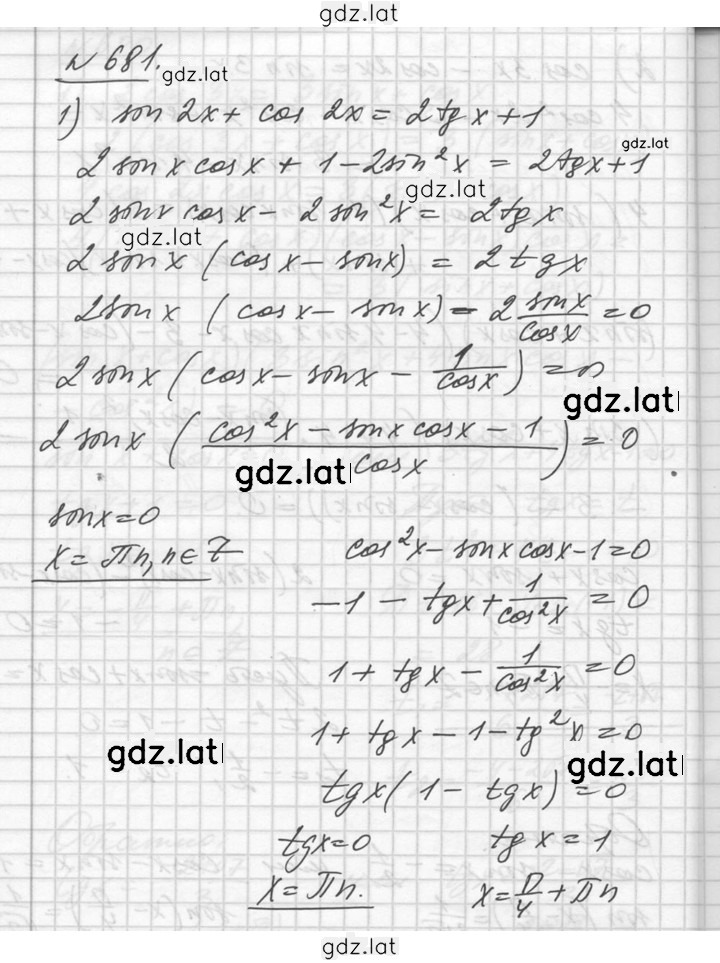 gdz.lat
N 681.
gdz.lat
1) sin 2x + cos 2x = 2tg x + 1
gdz.lat
2 sin x cos x + 1 - 2sin²x = 2tgx + 1
gdz.lat
2 sinx cosx - 2 sin²x = 2tgx
gdz.lat
2 sinx (cosx - sinx) = 2tgx
2sinx (cosx - sinx) - 2 sinx/cosx = 0
2 sinx (cosx - sinx - 1/cosx) = 0
gdz.lat
2 sinx ((cos²x - sinx cosx - 1)/cosx) = 0
gdz.lat
sinx = 0
x = πn, n ∈ Z
cos²x - sinx cosx - 1 = 0
-1 - tgx + 1/cos²x = 0
1 + tgx - 1/cos²x = 0
1 + tgx - 1 - tg²x = 0
gdz.lat
gdz.lat
tgx (1 - tgx) = 0
tgx = 0
x = πn.
tgx = 1
x = π/4 + πn
gdz.lat